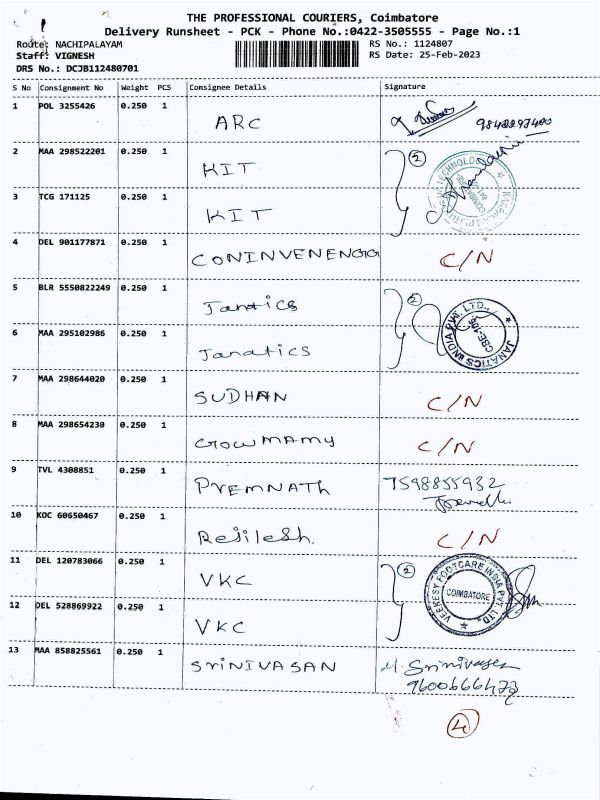 THE PROFESSIONAL COURIERS, Coimbatore
Delivery Runsheet - PCK - Phone No.:0422-3505555 - Page No.:1
Route: NACHIPALAYAM RS No.: 1124807
Staff: VIGNESH RS Date: 25-Feb-2023
DRS No.: DCJB112480701
S No Consignment No Weight PCS Consignee Details Signature
1 POL 3255426 0.250 1 ARC 9842297400
2 MAA 298522201 0.250 1 KIT 2
3 TCG 171125 0.250 1 KIT
4 DEL 901177871 0.250 1 CONINVENENGG C/N
5 BLR 5550822249 0.250 1 Janatics 2
6 MAA 295102986 0.250 1 Janatics JANATICS INDIA PVT. LTD., CBE-106
7 MAA 298644020 0.250 1 SUDHAN C/N
8 MAA 298654230 0.250 1 GOWMAMY C/N
9 TVL 4308851 0.250 1 PREMNATH 7598855932
10 KOC 60650467 0.250 1 Rejilesh. C/N
11 DEL 120783066 0.250 1 VKC 2
VEEKESY FOOTCARE INDIA PVT. LTD. COIMBATORE
12 DEL 528869922 0.250 1 VKC
13 MAA 858825561 0.250 1 SRINIVASAN M. Srinivasan
9600666473
4